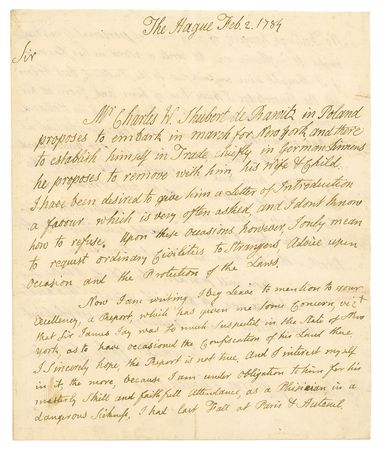 The Hague Feb. 2. 1784
Sir
Mr. Charles W. Hubert de Ramitz in Poland
proposes to embark in march for New York, and there
to establish himself in Trade, chiefly in German Linnens
he proposes to remove with him, his Wife & Child.
I have been desired to give him a Letter of Introduction
a favour which is very often asked, and I don't know
how to refuse. Upon these occasions however, I only mean
to request ordinary Civilities to Strangers Advice upon
occasion and the Protection of the Laws.
Now I am writing I beg Leave to mention to your
Excellency, a Report, which has given me some Concern, vizt
that Sir James Jay was so much suspected in the State of New
York, as to have occasioned the Confiscation of his Land there
I sincerely hope, the Report is not true, And I interest myself
in it, the more, because I am under obligation to him for his
masterly Skill and faithfull Attendance, as a Phisician in a
dangerous Sickness, I had last Fall at Paris & Auteuil.